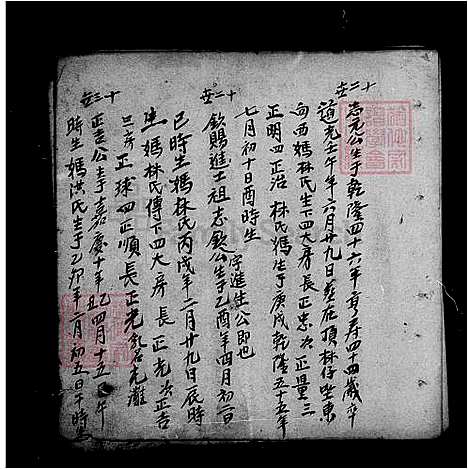 十二世
志元公生于乾隆四十六年享寿四十四歲卒
道光壬午年六月廿九日葬在頂林仔坐東
向西媽林氏生下四大房長正忠次正量三
正明四正治 林氏媽生于庚戌乾隆五十五年
七月初十日酉時生
十二世 字進生公即也
欽賜進士祖志欽公生于乙酉年四月初一日
巳時生媽林氏丙戌年二月廿九日辰時
生 媽林氏傳下四大房長正光次正吉
三房正球四正順長正光乳名光
十三世
正吉公生于嘉慶十年乙丑四月十五日午
時生 媽洪氏生于乙卯年二月初五日午時生